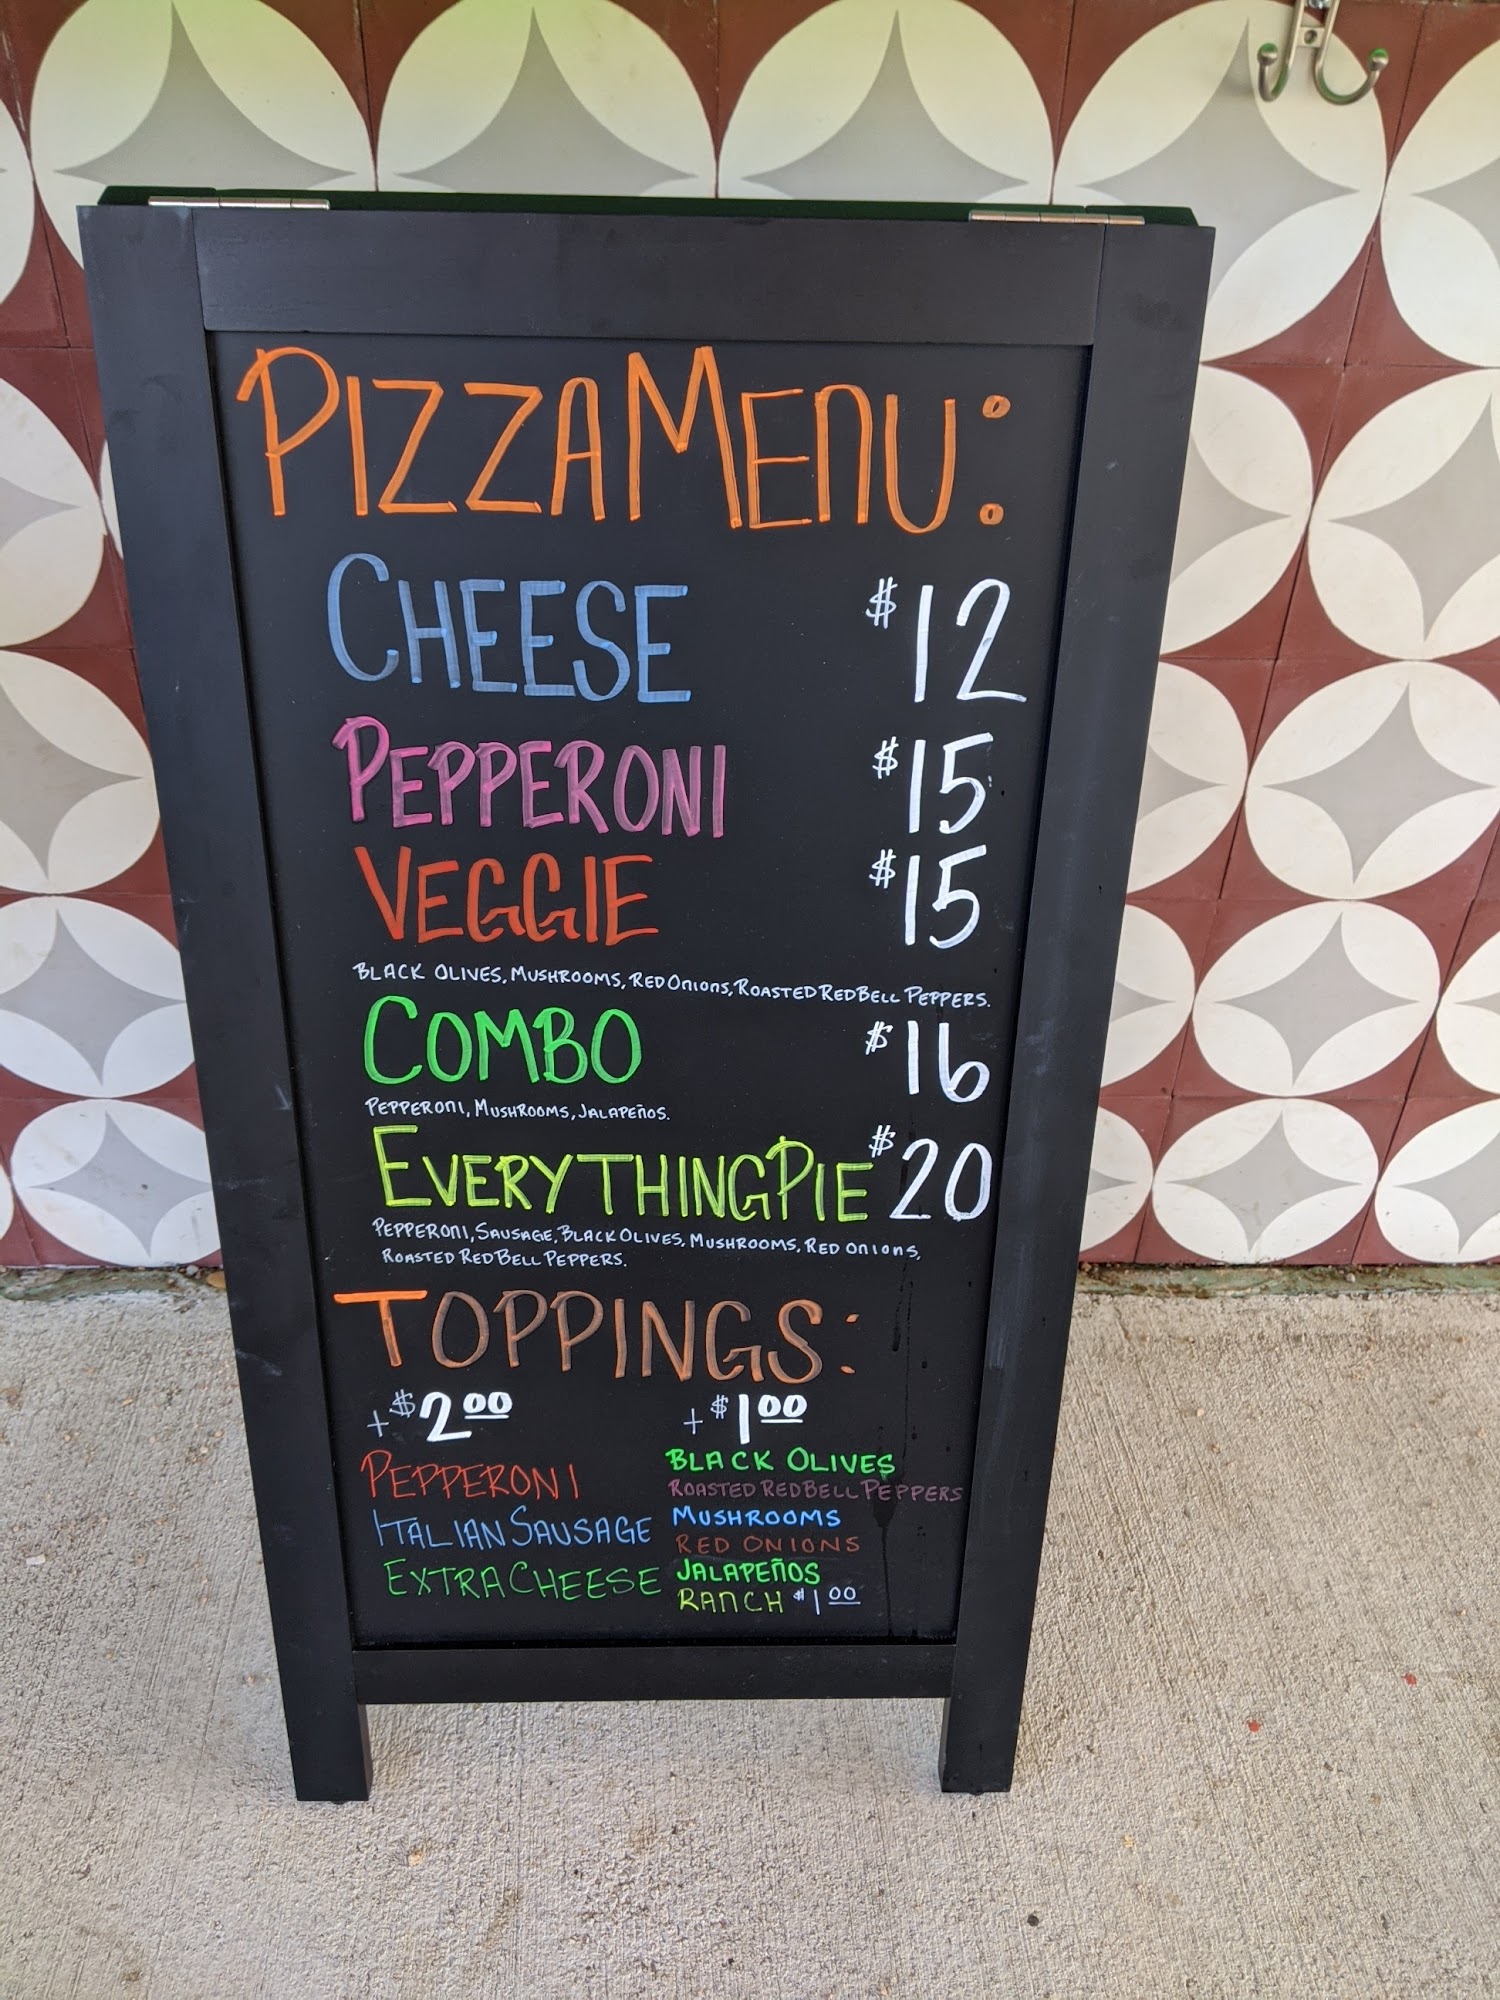 PIZZA MENU:
CHEESE $12
PEPPERONI $15
VEGGIE $15
BLACK OLIVES, MUSHROOMS, RED ONIONS, ROASTED RED BELL PEPPERS.
COMBO $16
PEPPERONI, MUSHROOMS, JALAPEÑOS.
EVERYTHING PIE $20
PEPPERONI, SAUSAGE, BLACK OLIVES, MUSHROOMS, RED ONIONS,
ROASTED RED BELL PEPPERS.
TOPPINGS:
+$2.00
PEPPERONI
ITALIAN SAUSAGE
EXTRA CHEESE
+$1.00
BLACK OLIVES
ROASTED RED BELL PEPPERS
MUSHROOMS
RED ONIONS
JALAPEÑOS
RANCH $1.00